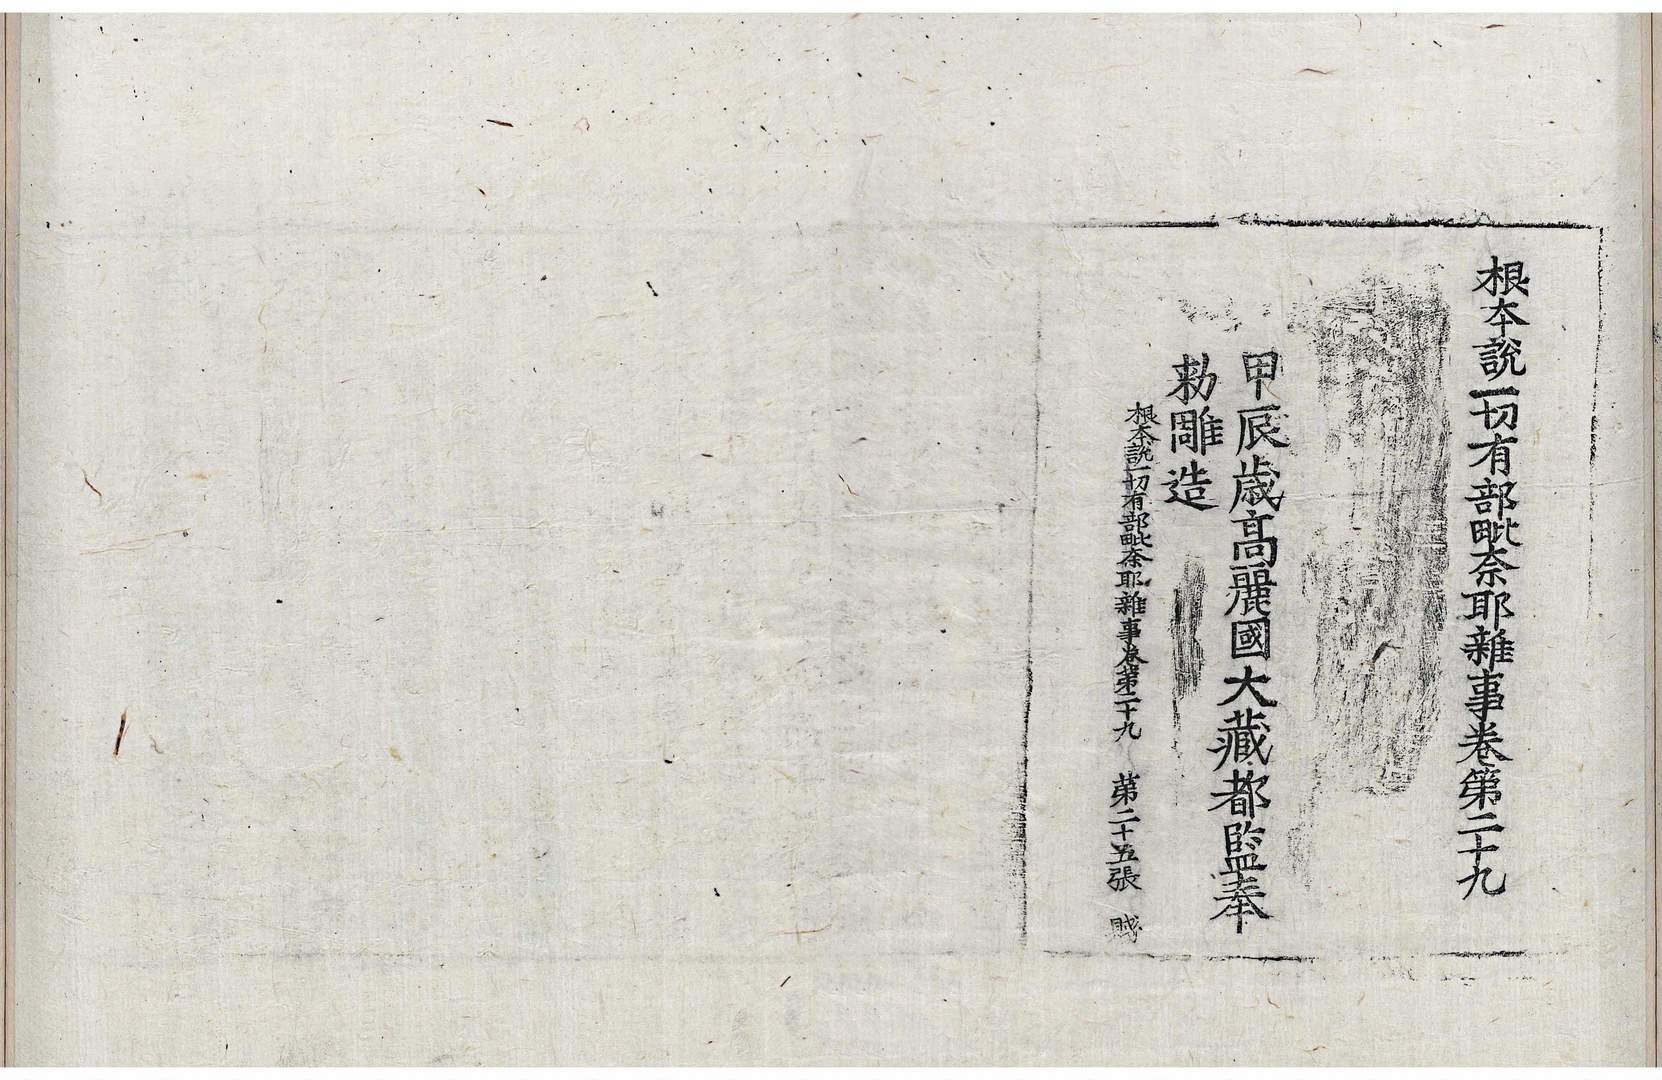 根本說一切有部毗奈耶雜事卷第二十九
甲辰歲高麗國大藏都監奉
勑雕造
根本說一切有部毗奈耶雜事卷第二十九 第二十五張 賤